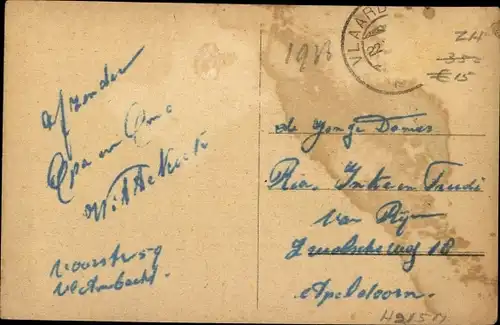 Afzender
Opa en Oma
Wittekoek
Voorstr 59
Vl Ambacht.
VLAARD
22
1933
ZH
350
€ 15
de Jonge Dames
Ria, Ineke en Trudi
van Rijn
Zwolscheweg 18
Apeldoorn.